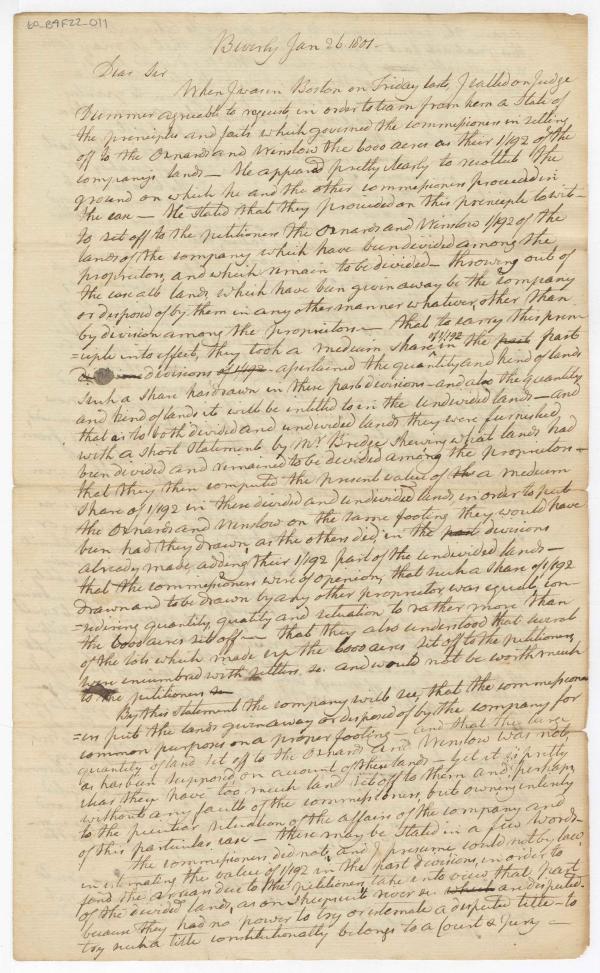 60_B4F22_011
Beverly Jan 26. 1801.
Dear Sir
When I was in Boston on Friday last, I called on Judge
Dummer agreeable to request, in order to learn from him a State of
the principles and facts which governed the commissioners in setting
off to the Oxnards and Winslow the 6000 acres as their 1/192 of the
companys lands — He appeared pretty clearly to recollect the
ground on which he and the other commissioners proceeded in
the case — He stated that they proceeded on this principle to wit —
to set off to the petitioners the Oxnards and Winslow 1/192 of the
lands of the company which have been divided among the
proprietors, and which remain to be divided — throwing out of
the case all lands which have been given away by the company
or disposed of by them in any other manner whatever, other than
by division among the proprietors — that to carry this prin-
=ciple into effect, they took a medium share of 1/192 in the past
divisions of 1/192 ascertained the quantity and kind of lands
such a share has drawn in these past divisions — and also the quantity
and kind of lands it will be entitled to in the undivided lands — and
that as to both divided and undivided lands they were furnished
with a short statement by Mr. Bridge shewing what lands had
been divided and remained to be divided among the proprietors —
that they then computed the present value of a medium
share of 1/192 in these divided and undivided lands, in order to put
the Oxnards and Winslow on the same footing they would have
been had they drawn, as the others did, in the past divisions
already made, adding their 1/192 part of the undivided lands —
that the commissioners were of opinion, that such a share of 1/192
drawn and to be drawn by any other proprietor was equal, con-
=sidering quantity, quality and situation to rather more than
the 6000 acres set off — that they also understood that several
of the lots which made up the 6000 acres set off to the petitioners
were incumbred with settlers &c. and would not be worth much
to the petitioners
By this statement the company will see, that the commission-
=ers put the lands given away or disposed of by the company for
common purposes on a proper footing — and that the large
quantity of land set off to the Oxnards and Winslow was not,
as has been supposed, on account of these lands — yet it is pretty
clear they have too much land set off to them and perhaps
without any fault of the commissioners, but owing intirely
to the peculiar situation of the affairs of the company and
of this particular case — these may be stated in a few words
The commissioners did not, and I presume could not by law
in estimating the value of 1/192 in the past divisions, in order to
find the arrears due to the petitioners, take into view that part
of the divided lands, as on Sheepscutt river &c. and disputed
because they had no power to try or estimate a disputed title — to
try such a title constitutionally belongs to a Court & Jury —